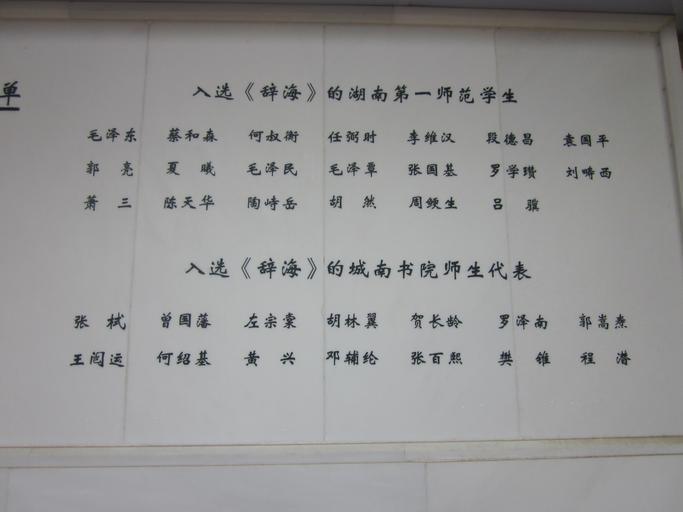 单
入选《辞海》的湖南第一师范学生
毛泽东 蔡和森 何叔衡 任弼时 李维汉 段德昌 袁国平
郭亮 夏曦 毛泽民 毛泽覃 张国基 罗学瓒 刘畴西
萧三 陈天华 陶峙岳 胡然 周鲠生 吕骥
入选《辞海》的城南书院师生代表
张栻 曾国藩 左宗棠 胡林翼 贺长龄 罗泽南 郭嵩焘
王闿运 何绍基 黄兴 邓辅纶 张百熙 樊锥 程潜